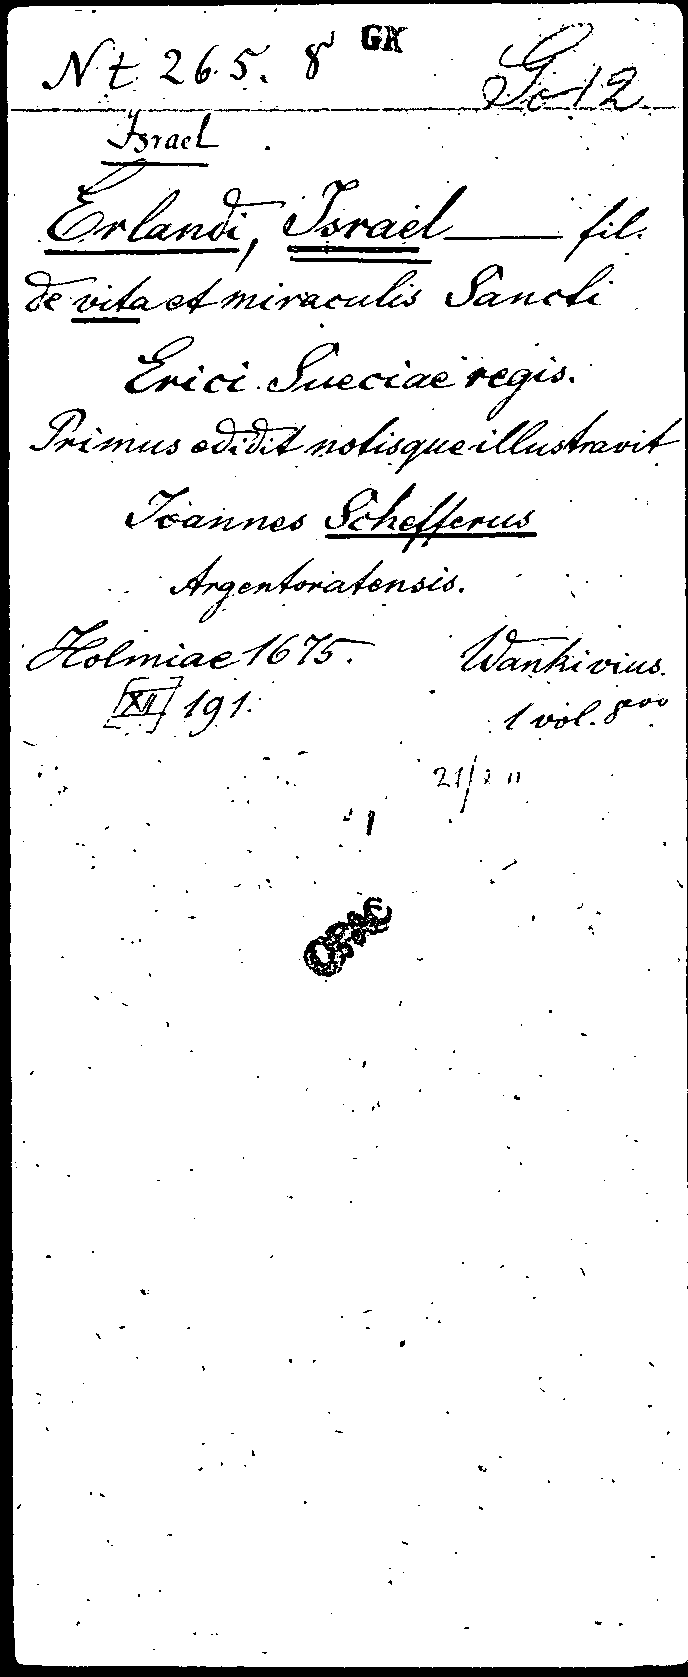 Nt 265. 8 GK
Israel
Erlandi, Israel fil.
de vita et miraculis Sancti
Erici Sueciae regis.
Primus edidit notisque illustravit
Joannes Schefferus
Argentoratensis.
Holmiae 1675. Wankivius.
[XII] 191. 1 vol. 8vo
21/
OPAC